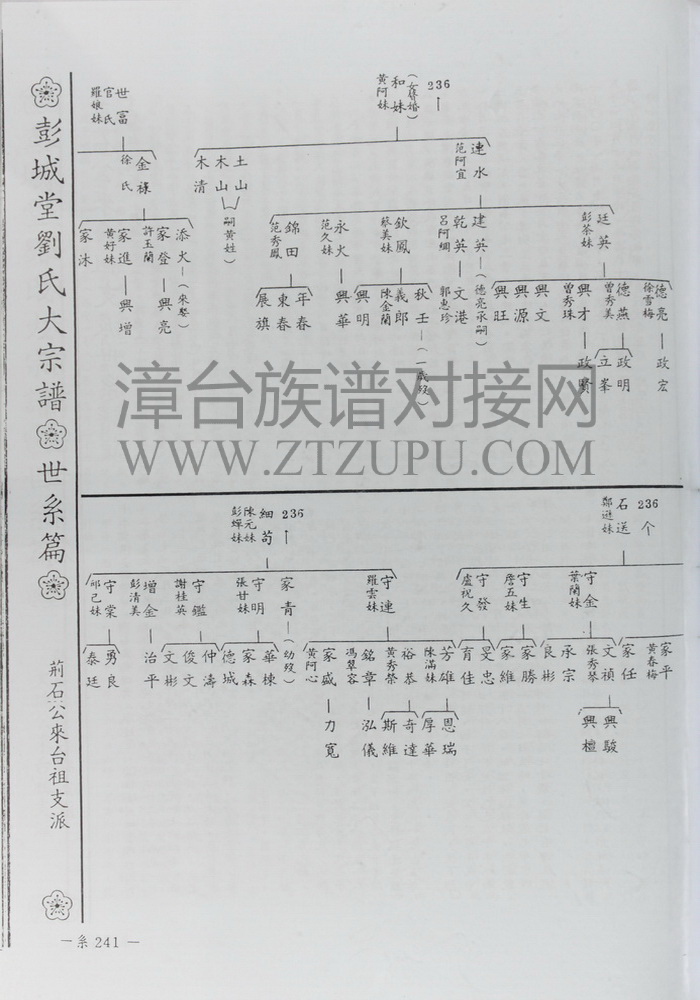 彭城堂劉氏大宗譜
世系篇
荊石公來台祖支派
236
(女婿婚)
和妹
黃阿妹
世富
官氏
羅娘妹
連水
范阿宜
土山
木山
(嗣黃姓)
木清
金祿
徐氏
廷英
彭茶妹
建英—(德亮承嗣)
乾英—文港
呂阿綢
郭惠珍
欽鳳
蔡美妹
永火—興華
范久妹
錦田
范秀鳳
添火—(來聟)
家登—興亮
許玉蘭
家進—興增
黃好妹
家沐
德亮—政宏
徐雪梅
德燕
曾秀美
政明
立峯
興才—政賢
曾秀珠
興文
興源
興旺
秋壬—(一歲歿)
義郎
陳金蘭
興明
年春
東春
展旗
236
石送
鄭遊妹
236
細苟
陳元妹
彭嬋妹
守金
葉蘭妹
守生
詹五妹
守發
盧祝久
守連
羅雲妹
家青—(幼歿)
守明
張甘妹
守鑑
謝桂英
增金
彭清美
治平
守棠
邱己妹
家平
黃春梅
家任
文禎
張秀琴
興駿
興檀
承宗
良彬
家勝
家維
旻忠
育佳
芳雄
陳滿妹
恩瑞
厚華
裕恭
黃秀榮
奇達
斯維
銘章—泓儀
馮翠容
家盛—力寬
黃阿心
華棟
家森
德城
仲濤
俊文
文彬
勇良
泰廷
漳台族谱对接网
WWW.ZTZUPU.COM
—系 241—